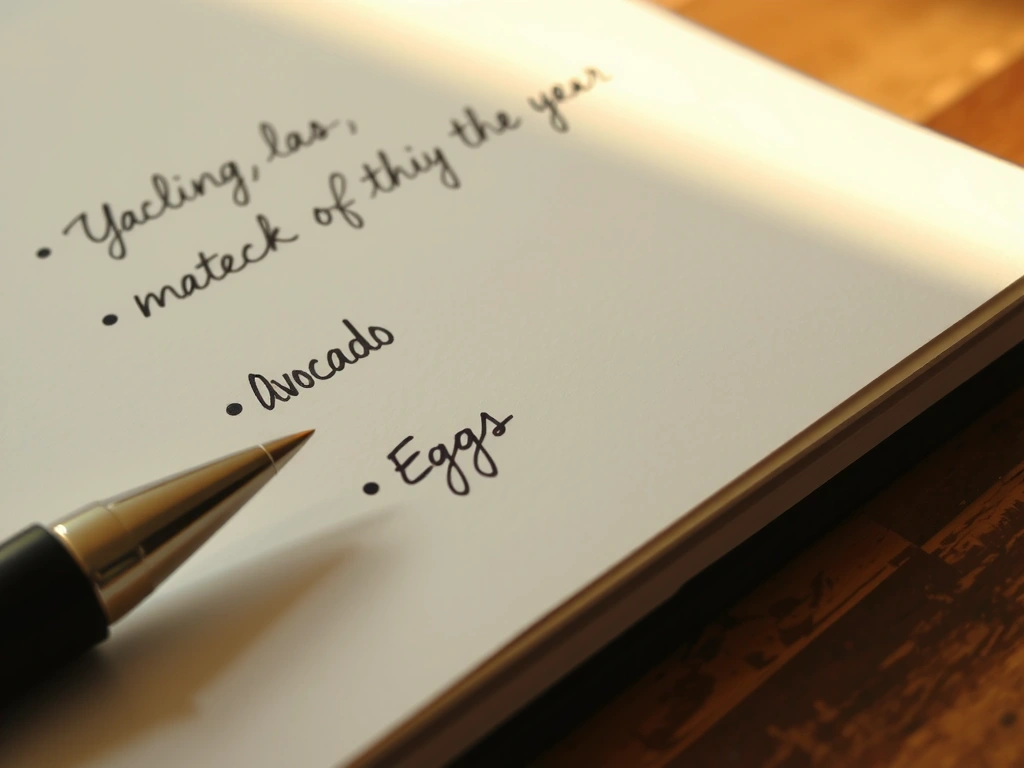 • Yacling, las,
• mateck of thiy the year
• Avocado
• Eggs